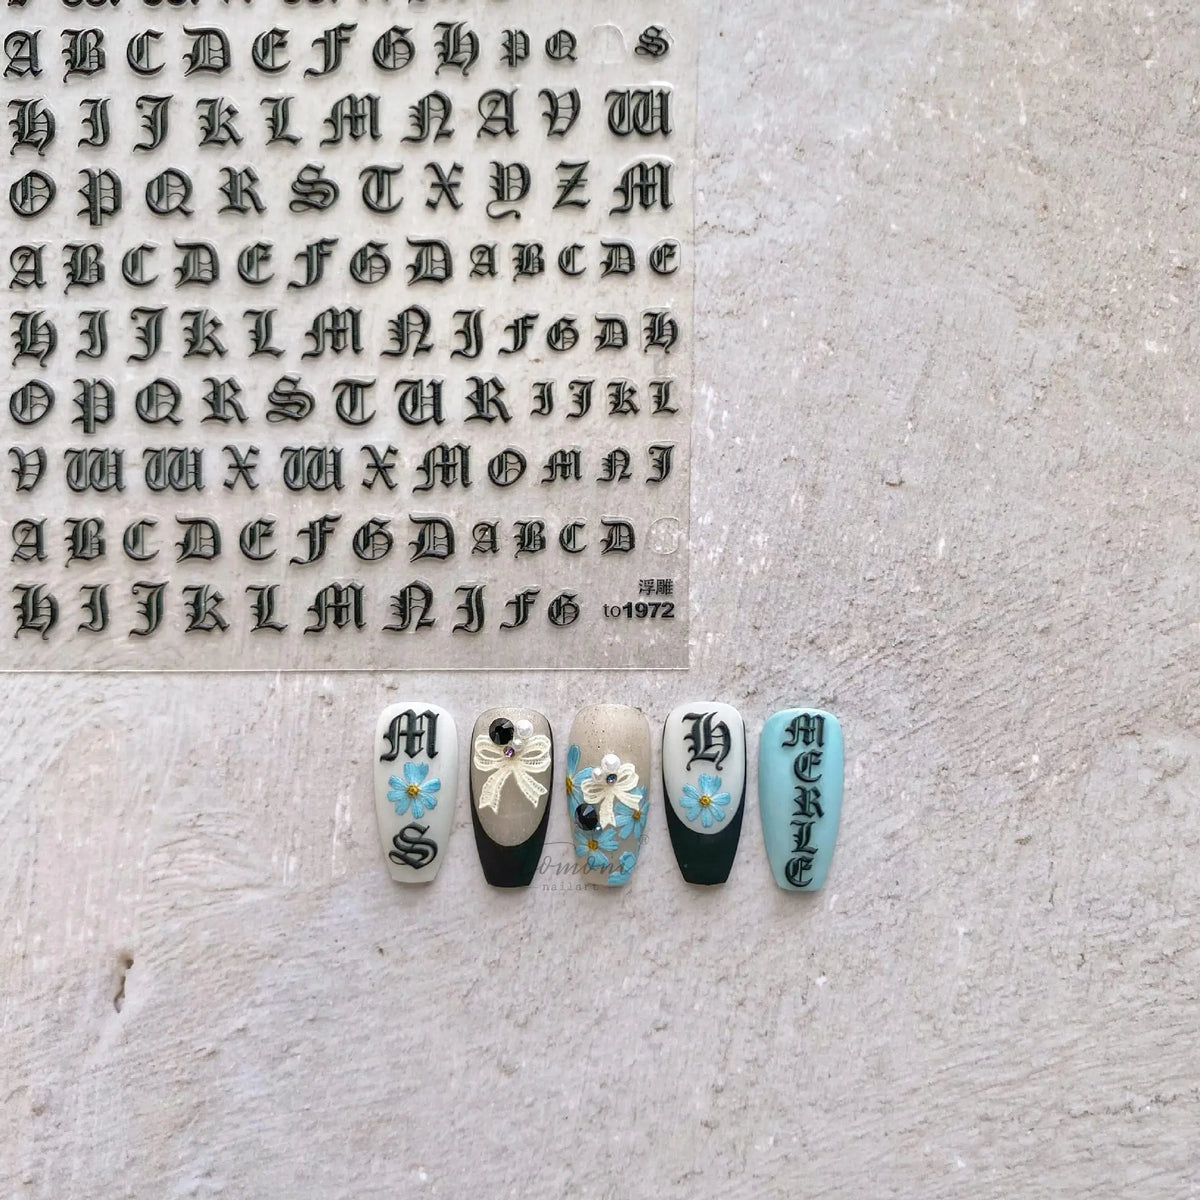 A B C D E F G H P Q S
H I J K L M N A V W
O P Q R S T X Y Z M
A B C D E F G D A B C D E
H I J K L M N I F G D H
O P Q R S T U R I J K L
V W W X W X M O M N J
A B C D E F G D A B C D
H I J K L M N I F G
浮雕
to1972
M
S
H
MERLE
nailart